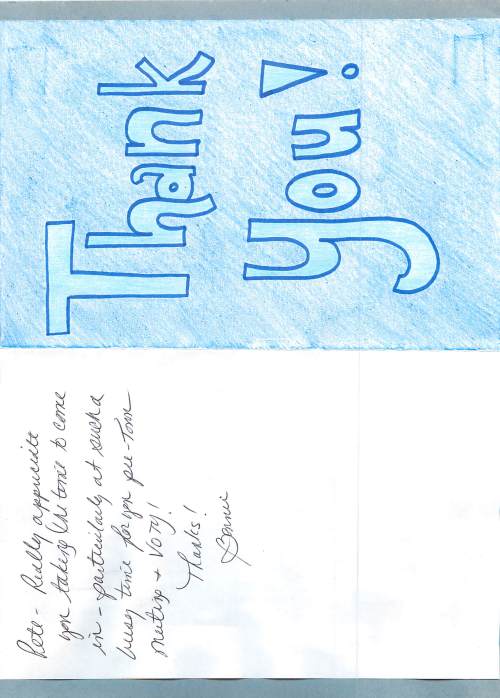 Thank
you!
Pete - Really appreciate
you taking the time to come
in - particularly at such a
busy time for you pre-Town
meeting + Vory!
Thanks!
Bonnie